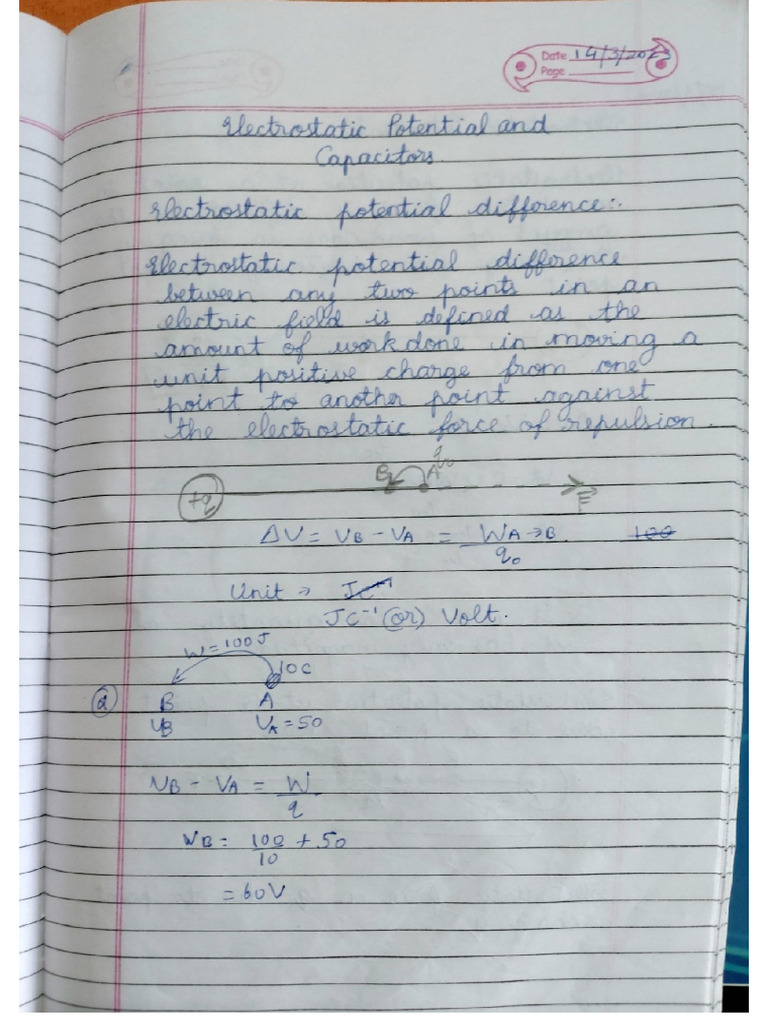 Date 14/3/2023
Page
Electrostatic Potential and
Capacitors.
Electrostatic potential difference:-
Electrostatic potential difference
between any two points in an
electric field is defined as the
amount of work done in moving a
unit positive charge from one
point to another point against
the electrostatic force of repulsion.
q₀
B A
+q E
ΔV = VB - VA = WA→B / q₀ 100
Unit → JC⁻¹
JC⁻¹ (or) Volt.
W = 100J
10C
Q B A
VB VA = 50
VB - VA = W / q
WB = 100 / 10 + 50
= 60V